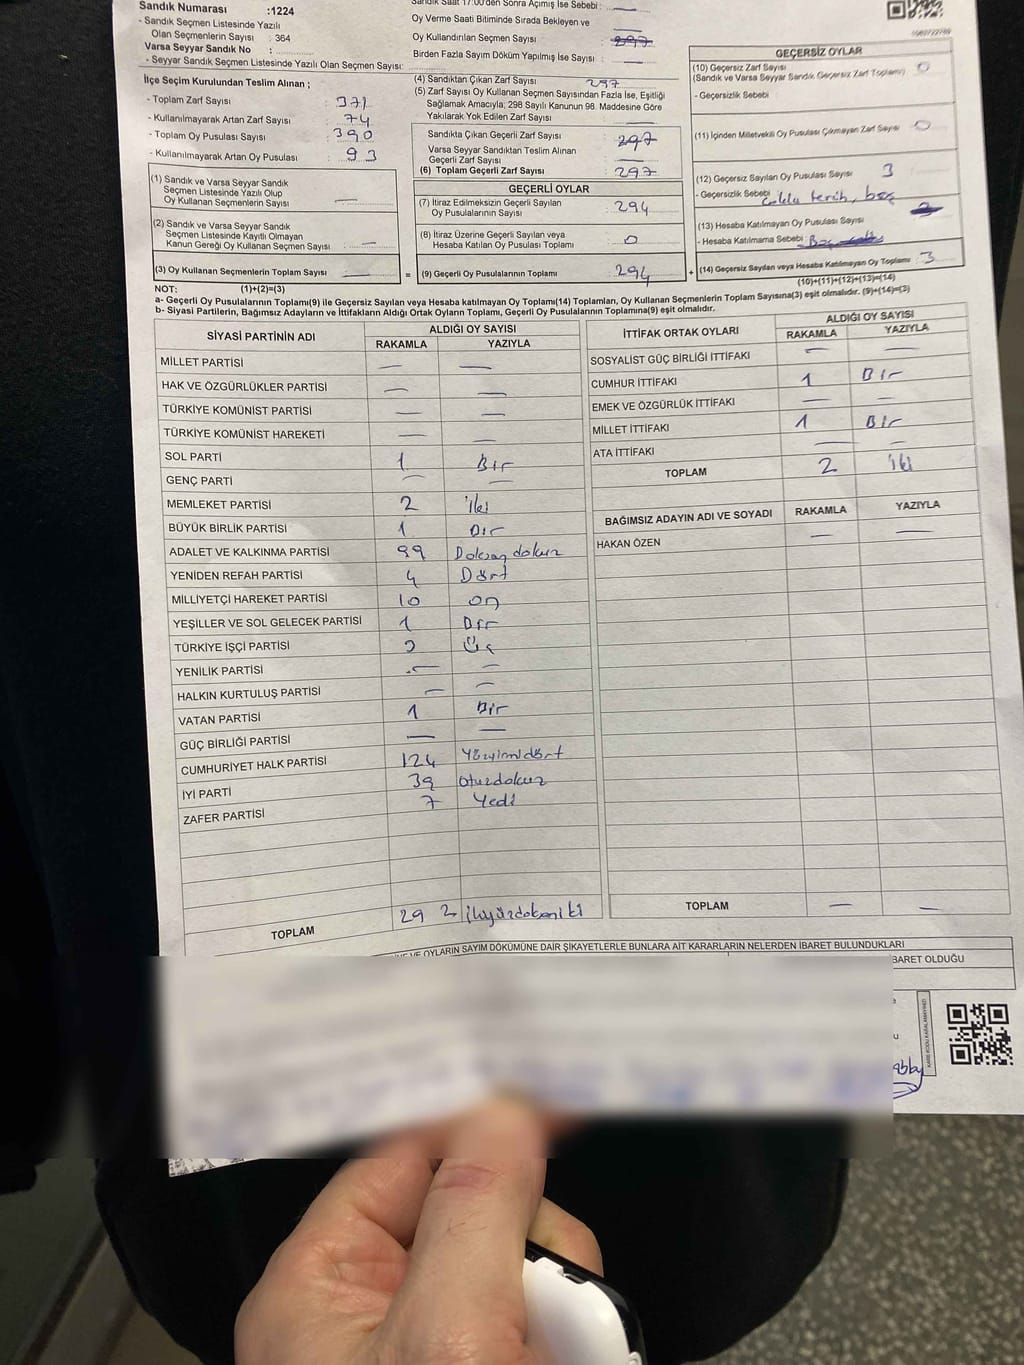 Sandık Numarası :1224
- Sandık Seçmen Listesinde Yazılı
Olan Seçmenlerin Sayısı : 364
Varsa Seyyar Sandık No :
- Seyyar Sandık Seçmen Listesinde Yazılı Olan Seçmen Sayısı:
Sandık Saat 17:00'den Sonra Açılmış İse Sebebi : —
Oy Verme Saati Bitiminde Sırada Bekleyen ve
Oy Kullandırılan Seçmen Sayısı : 297
Birden Fazla Sayım Döküm Yapılmış İse Sayısı : —
İlçe Seçim Kurulundan Teslim Alınan ;
- Toplam Zarf Sayısı : 371
- Kullanılmayarak Artan Zarf Sayısı : 74
- Toplam Oy Pusulası Sayısı : 390
- Kullanılmayarak Artan Oy Pusulası : 93
(1) Sandık ve Varsa Seyyar Sandık
Seçmen Listesinde Yazılı Olup
Oy Kullanan Seçmenlerin Sayısı : —
(2) Sandık ve Varsa Seyyar Sandık
Seçmen Listesinde Kayıtlı Olmayan
Kanun Gereği Oy Kullanan Seçmen Sayısı : —
(3) Oy Kullanan Seçmenlerin Toplam Sayısı : —
(4) Sandıktan Çıkan Zarf Sayısı : 297
(5) Zarf Sayısı Oy Kullanan Seçmen Sayısından Fazla İse, Eşitliği
Sağlamak Amacıyla; 298 Sayılı Kanunun 98. Maddesine Göre
Yakılarak Yok Edilen Zarf Sayısı : —
Sandıkta Çıkan Geçerli Zarf Sayısı : 297
Varsa Seyyar Sandıktan Teslim Alınan
Geçerli Zarf Sayısı : —
(6) Toplam Geçerli Zarf Sayısı : 297
GEÇERLİ OYLAR
(7) İtiraz Edilmeksizin Geçerli Sayılan
Oy Pusulalarının Sayısı : 294
(8) İtiraz Üzerine Geçerli Sayılan veya
Hesaba Katılan Oy Pusulası Toplamı : 0
= (9) Geçerli Oy Pusulalarının Toplamı : 294
GEÇERSİZ OYLAR
(10) Geçersiz Zarf Sayısı : 0
(Sandık ve Varsa Seyyar Sandık Geçersiz Zarf Toplamı)
- Geçersizlik Sebebi :
(11) İçinden Milletvekili Oy Pusulası Çıkmayan Zarf Sayısı : 0
(12) Geçersiz Sayılan Oy Pusulası Sayısı : 3
- Geçersizlik Sebebi : Çoklu tercih, boş
(13) Hesaba Katılmayan Oy Pusulası Sayısı
- Hesaba Katılmama Sebebi :
+ (14) Geçersiz Sayılan veya Hesaba Katılmayan Oy Toplamı : 3
(10)+(11)+(12)+(13)=(14)
NOT: (1)+(2)=(3)
a- Geçerli Oy Pusulalarının Toplamı(9) ile Geçersiz Sayılan veya Hesaba katılmayan Oy Toplamı(14) Toplamları, Oy Kullanan Seçmenlerin Toplam Sayısına(3) eşit olmalıdır. (9)+(14)=(3)
b- Siyasi Partilerin, Bağımsız Adayların ve İttifakların Aldığı Ortak Oyların Toplamı, Geçerli Oy Pusulalarının Toplamına(9) eşit olmalıdır.
SİYASİ PARTİNİN ADI ALDIĞI OY SAYISI
RAKAMLA YAZIYLA
MİLLET PARTİSİ — —
HAK VE ÖZGÜRLÜKLER PARTİSİ — —
TÜRKİYE KOMÜNİST PARTİSİ — —
TÜRKİYE KOMÜNİST HAREKETİ — —
SOL PARTİ 1 Bir
GENÇ PARTİ — —
MEMLEKET PARTİSİ 2 iki
BÜYÜK BİRLİK PARTİSİ 1 Bir
ADALET VE KALKINMA PARTİSİ 99 Doksandokuz
YENİDEN REFAH PARTİSİ 4 Dört
MİLLİYETÇİ HAREKET PARTİSİ 10 on
YEŞİLLER VE SOL GELECEK PARTİSİ 1 Bir
TÜRKİYE İŞÇİ PARTİSİ 3 Üç
YENİLİK PARTİSİ — —
HALKIN KURTULUŞ PARTİSİ — —
VATAN PARTİSİ 1 Bir
GÜÇ BİRLİĞİ PARTİSİ — —
CUMHURİYET HALK PARTİSİ 124 Yüzyirmidört
İYİ PARTİ 39 otuzdokuz
ZAFER PARTİSİ 7 Yedi
TOPLAM 292 ikiyüzdoksaniki
İTTİFAK ORTAK OYLARI ALDIĞI OY SAYISI
RAKAMLA YAZIYLA
SOSYALİST GÜÇ BİRLİĞİ İTTİFAKI — —
CUMHUR İTTİFAKI 1 Bir
EMEK VE ÖZGÜRLÜK İTTİFAKI — —
MİLLET İTTİFAKI 1 Bir
ATA İTTİFAKI — —
TOPLAM 2 iki
BAĞIMSIZ ADAYIN ADI VE SOYADI RAKAMLA YAZIYLA
HAKAN ÖZEN — —
TOPLAM — —
VE OYLARIN SAYIM DÖKÜMÜNE DAİR ŞİKAYETLERLE BUNLARA AİT KARARLARIN NELERDEN İBARET BULUNDUKLARI
BARET OLDUĞU